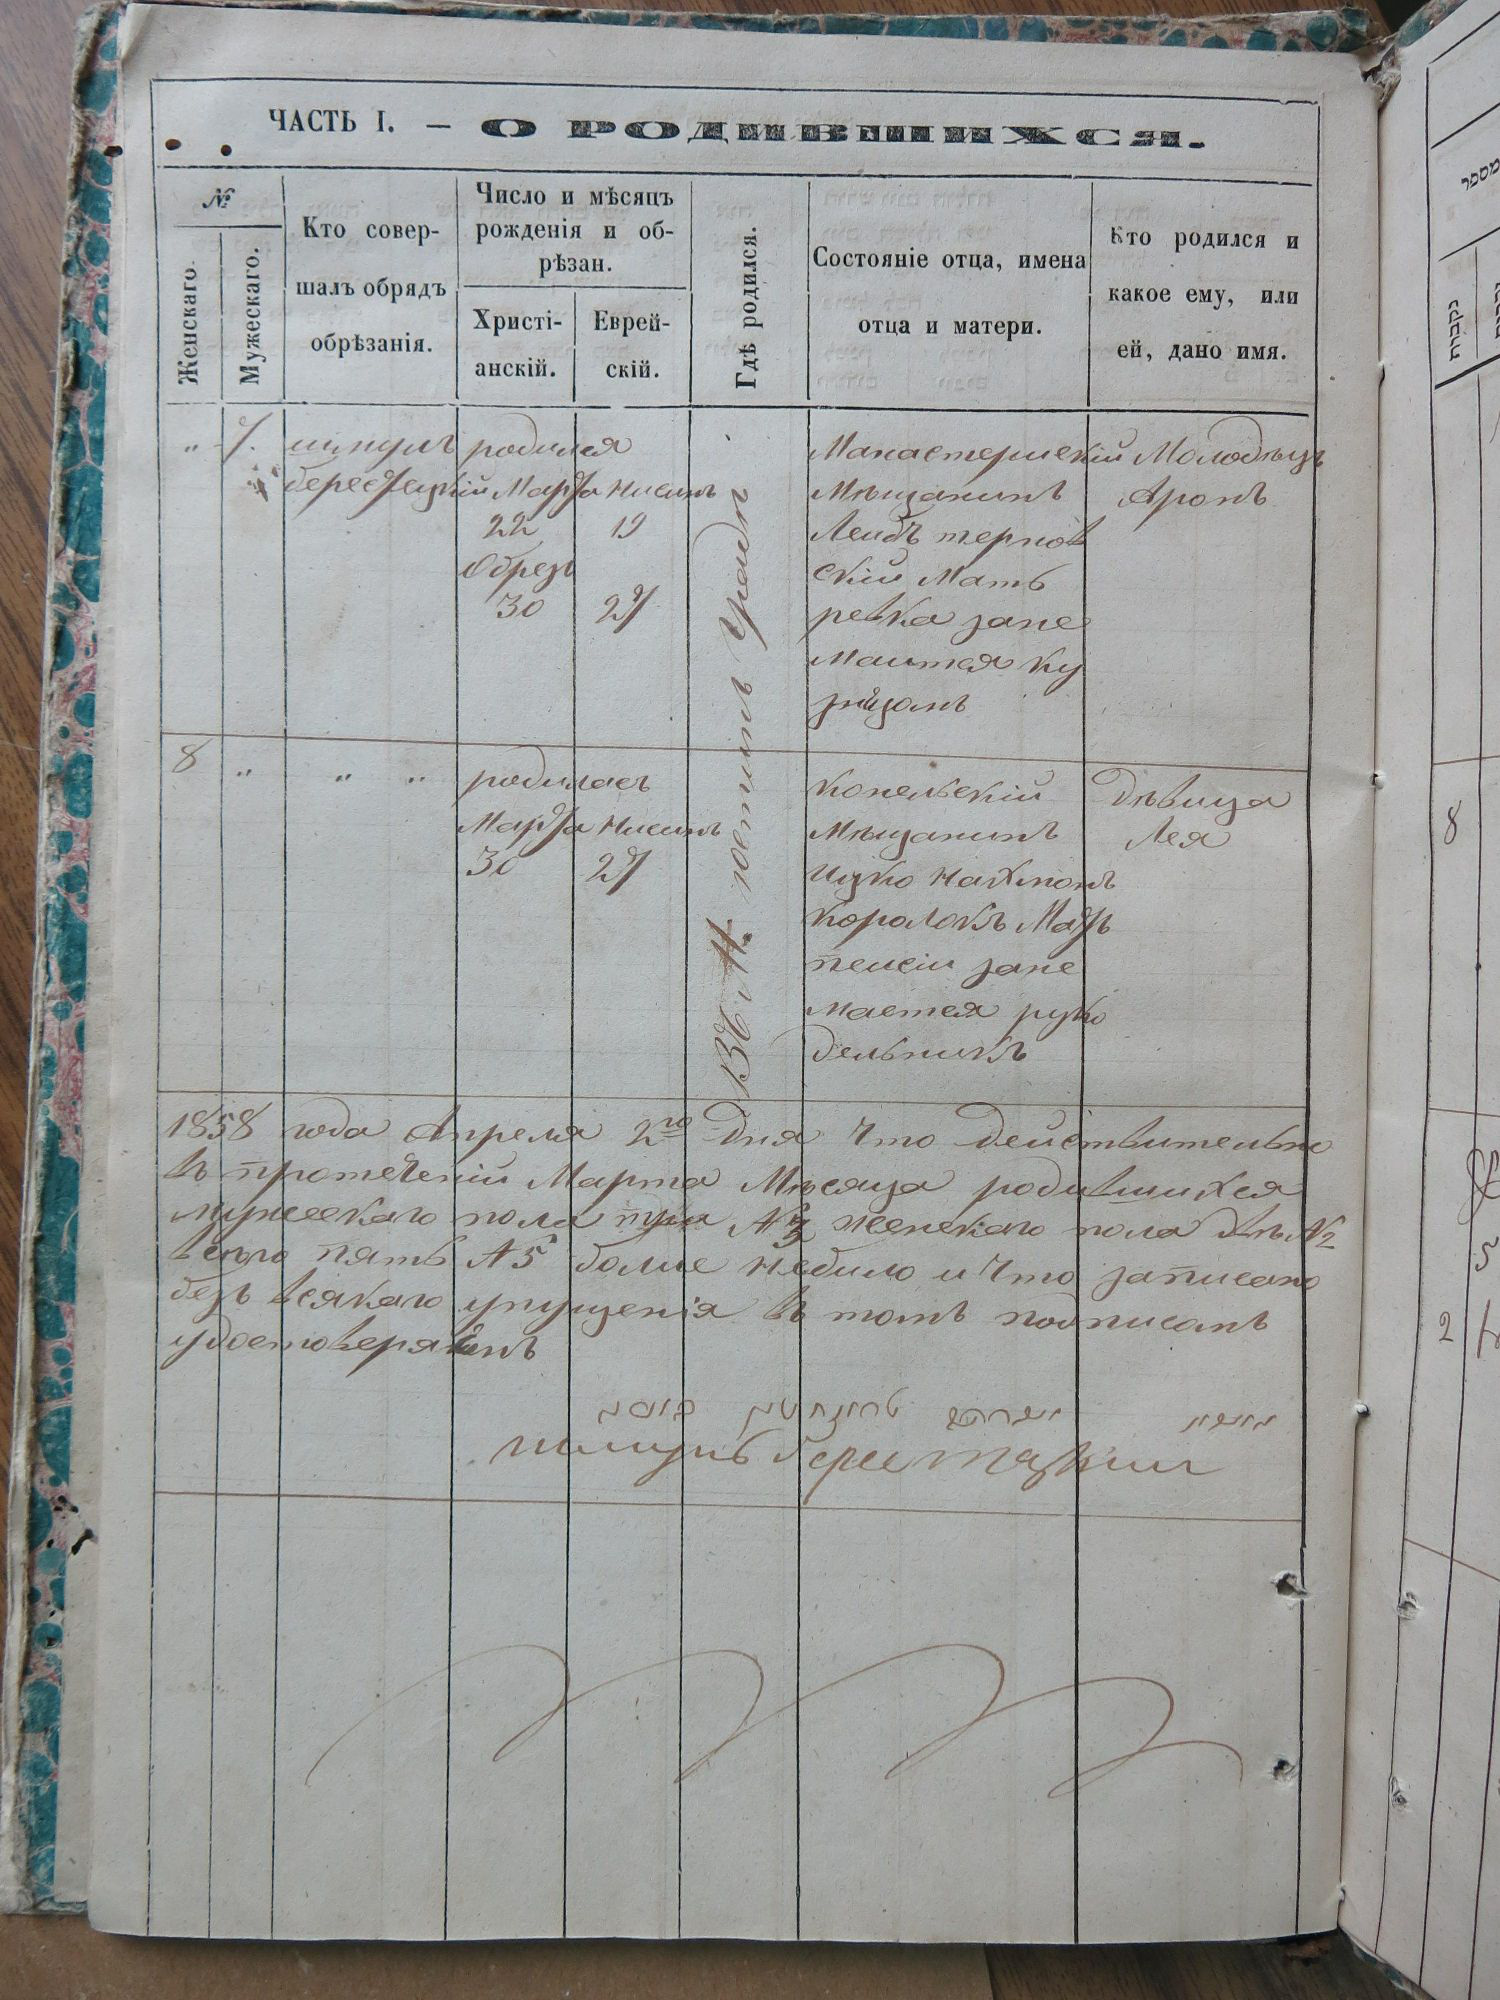 ЧАСТЬ I. — О РОДИВШИХСЯ.
№
Женскаго.
Мужескаго.
Кто совер-
шалъ обрядъ
обрѣзанія.
Число и мѣсяцъ
рожденія и об-
рѣзан.
Христі-
анскій.
Еврей-
скій.
Гдѣ родился.
Состояніе отца, имена
отца и матери.
Кто родился и
какое ему, или
ей, дано имя.
" 7.
родился
Марта Нисинъ
22 19
Обрезъ
30 27
Манастерискій
Мѣщанинъ
Лейбъ тернов
скій Мать
ревка зане
маится ку
Молодѣцъ
Аронъ
8 " " "
родилась
Марта Нисинъ
30 27
конельскій
Мѣщанинъ
Ицко Нахманъ
королокъ Мать
зане
мается руко
дельникъ
Дѣвица
Лея
1858 года Апреля 2го дня что действительно
въ протечений Марта Мѣсяца родившихся
мужескаго пола три № 3 женскаго пола двѣ № 2
всего пять № 5 болие небило и что записано
безъ всякаго упущенія въ томъ подписомъ
удостоверяемъ
מספר
נקבות
8
5
2